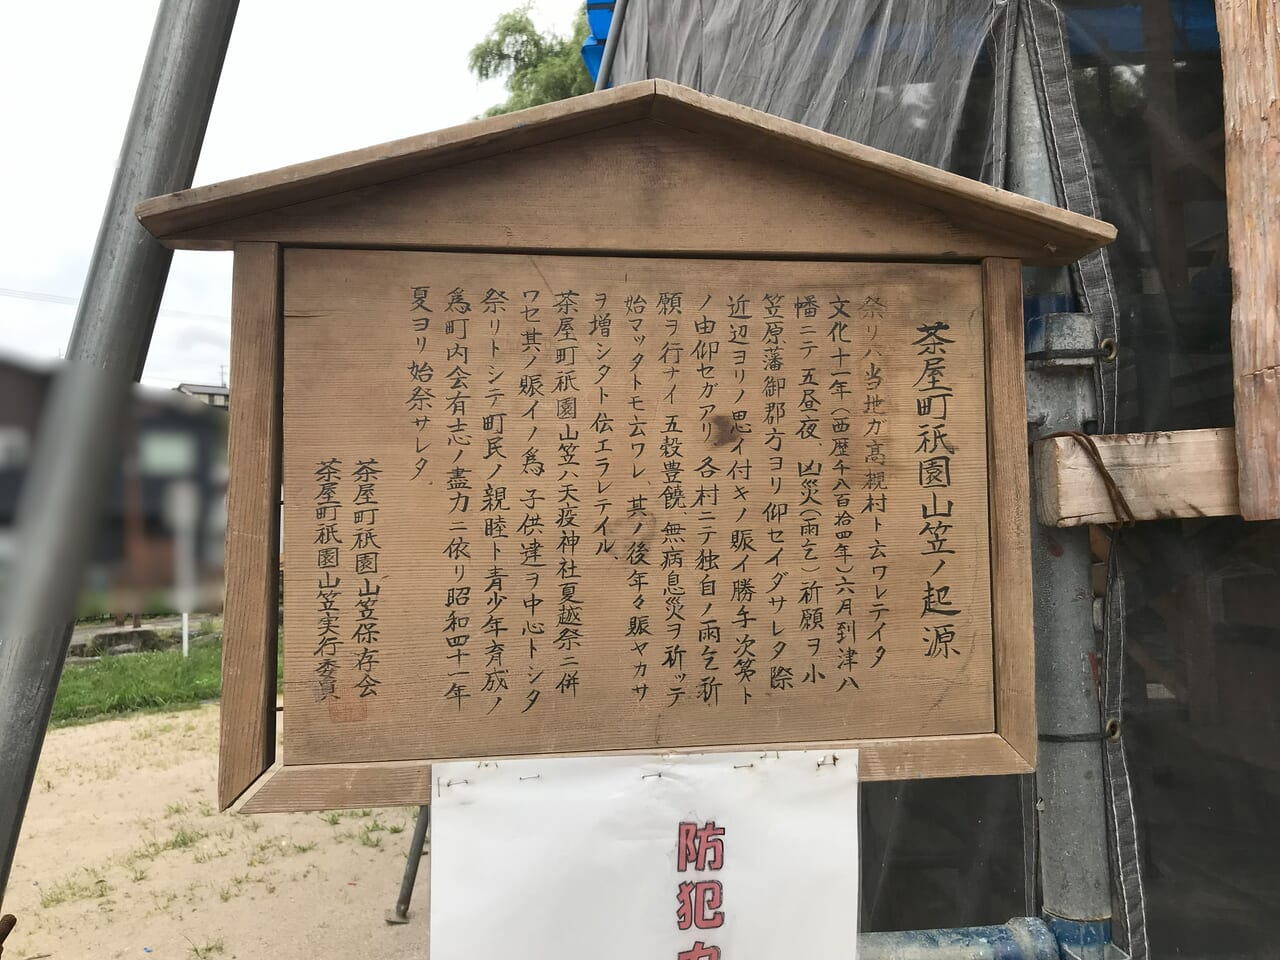 茶屋町祇園山笠ノ起源
祭リハ当地ガ高槻村ト云ワレテイタ
文化十一年(西歴千八百拾四年)六月到津八
幡ニテ五昼夜、凶災(雨乞)祈願ヲ小
笠原藩御郡方ヨリ仰セイダサレタ際
近辺ヨリノ思イ付キノ賑イ勝手次第ト
ノ由仰セガアリ各村ニテ独自ノ雨乞祈
願ヲ行ナイ五穀豊饒、無病息災ヲ祈ッテ
始マッタトモ云ワレ、其ノ後年々賑ヤカサ
ヲ増シタト伝エラレテイル
茶屋町祇園山笠ハ天疫神社夏越祭ニ併
ワセ其ノ賑イノ為子供達ヲ中心トシタ
祭リトシテ町民ノ親睦ト青少年育成ノ
為町内会有志ノ盡力ニ依リ昭和四十一年
夏ヨリ始祭サレタ
茶屋町祇園山笠保存会
茶屋町祇園山笠実行委員
防犯カ